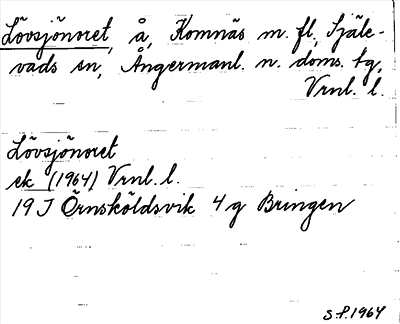 Lövsjönoret, å, Komnäs m. fl, Själe-
vads sn, Ångermanl. n. doms. tg,
Vrnl. l.
Lövsjönoret
ek (1964) Vrnl. l.
19 J Örnsköldsvik 4 g Bringen
S.P. 1964